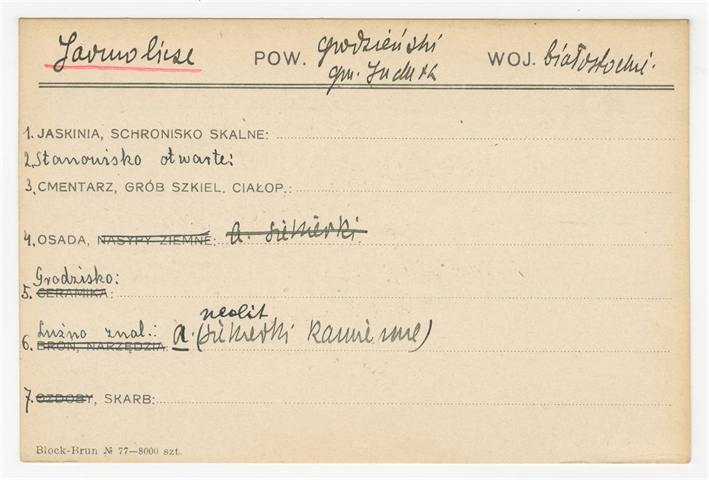 Jarmolicze POW. grodzieński WOJ. białostocki.
gm. Indura
1. JASKINIA, SCHRONISKO SKALNE:
2. Stanowisko otwarte:
3. CMENTARZ, GRÓB SZKIEL. CIAŁOP.:
4. OSADA, NASYPY ZIEMNE: a. siekierki.
Grodzisko:
5. CERAMIKA:
neolit
Luźno znal.: a. (siekierki kamienne)
6. BROŃ, NARZĘDZIA
7. OZDOBY, SKARB:
Block-Brun № 77—8000 szt.